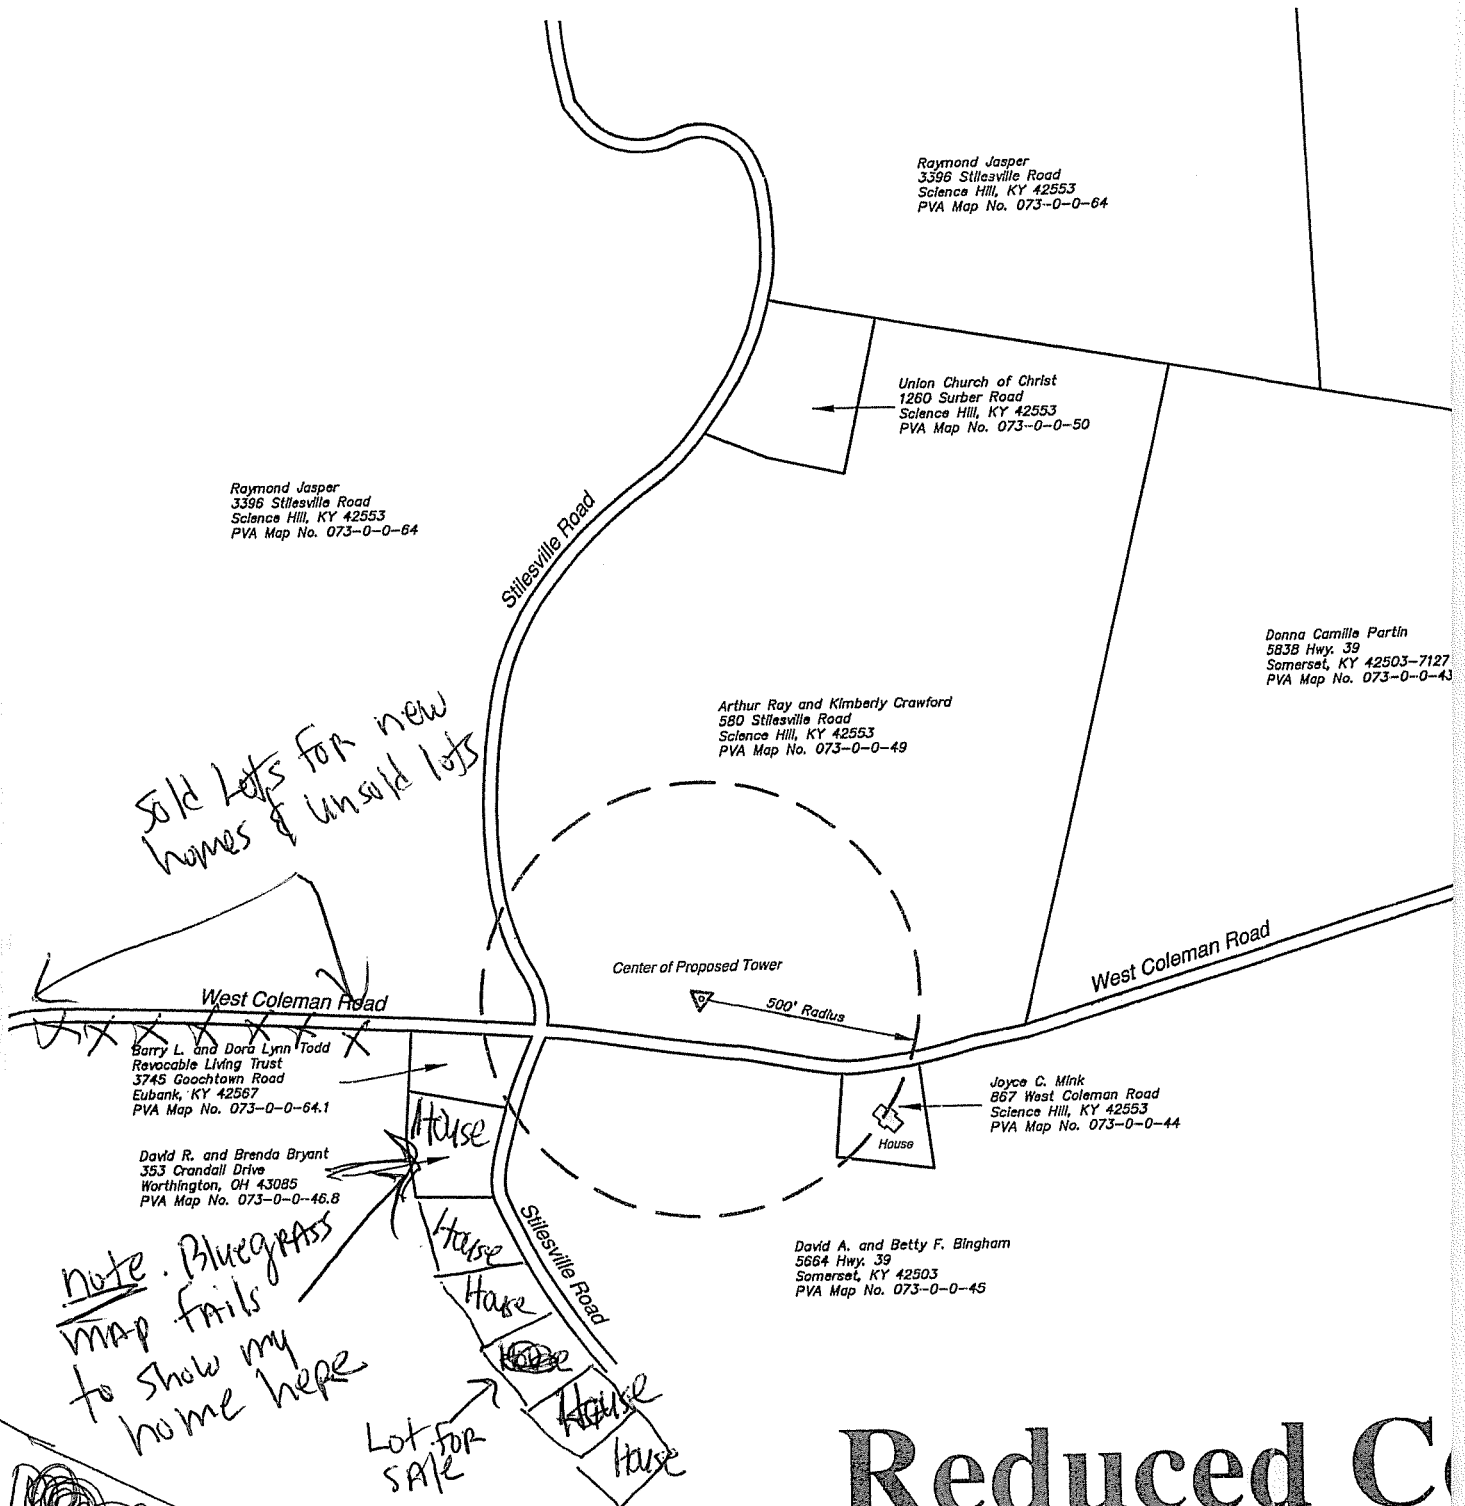 Raymond Jasper
3396 Stilesville Road
Science Hill, KY 42553
PVA Map No. 073-0-0-64
Union Church of Christ
1260 Surber Road
Science Hill, KY 42553
PVA Map No. 073-0-0-50
Raymond Jasper
3396 Stilesville Road
Science Hill, KY 42553
PVA Map No. 073-0-0-64
Stilesville Road
Donna Camille Partin
5838 Hwy. 39
Somerset, KY 42503-7127
PVA Map No. 073-0-0-43
Arthur Ray and Kimberly Crawford
580 Stilesville Road
Science Hill, KY 42553
PVA Map No. 073-0-0-49
Sold Lots for new
homes & unsold lots
Center of Proposed Tower
500' Radius
West Coleman Road
West Coleman Road
Barry L. and Dora Lynn Todd
Revocable Living Trust
3745 Goochtown Road
Eubank, KY 42567
PVA Map No. 073-0-0-64.1
Joyce C. Mink
867 West Coleman Road
Science Hill, KY 42553
PVA Map No. 073-0-0-44
House
House
David R. and Brenda Bryant
353 Crandall Drive
Worthington, OH 43085
PVA Map No. 073-0-0-46.8
Stilesville Road
David A. and Betty F. Bingham
5664 Hwy. 39
Somerset, KY 42503
PVA Map No. 073-0-0-45
note. Bluegrass
map fails
to show my
home here
House
House
House
House
Lot for
sale
Reduced C